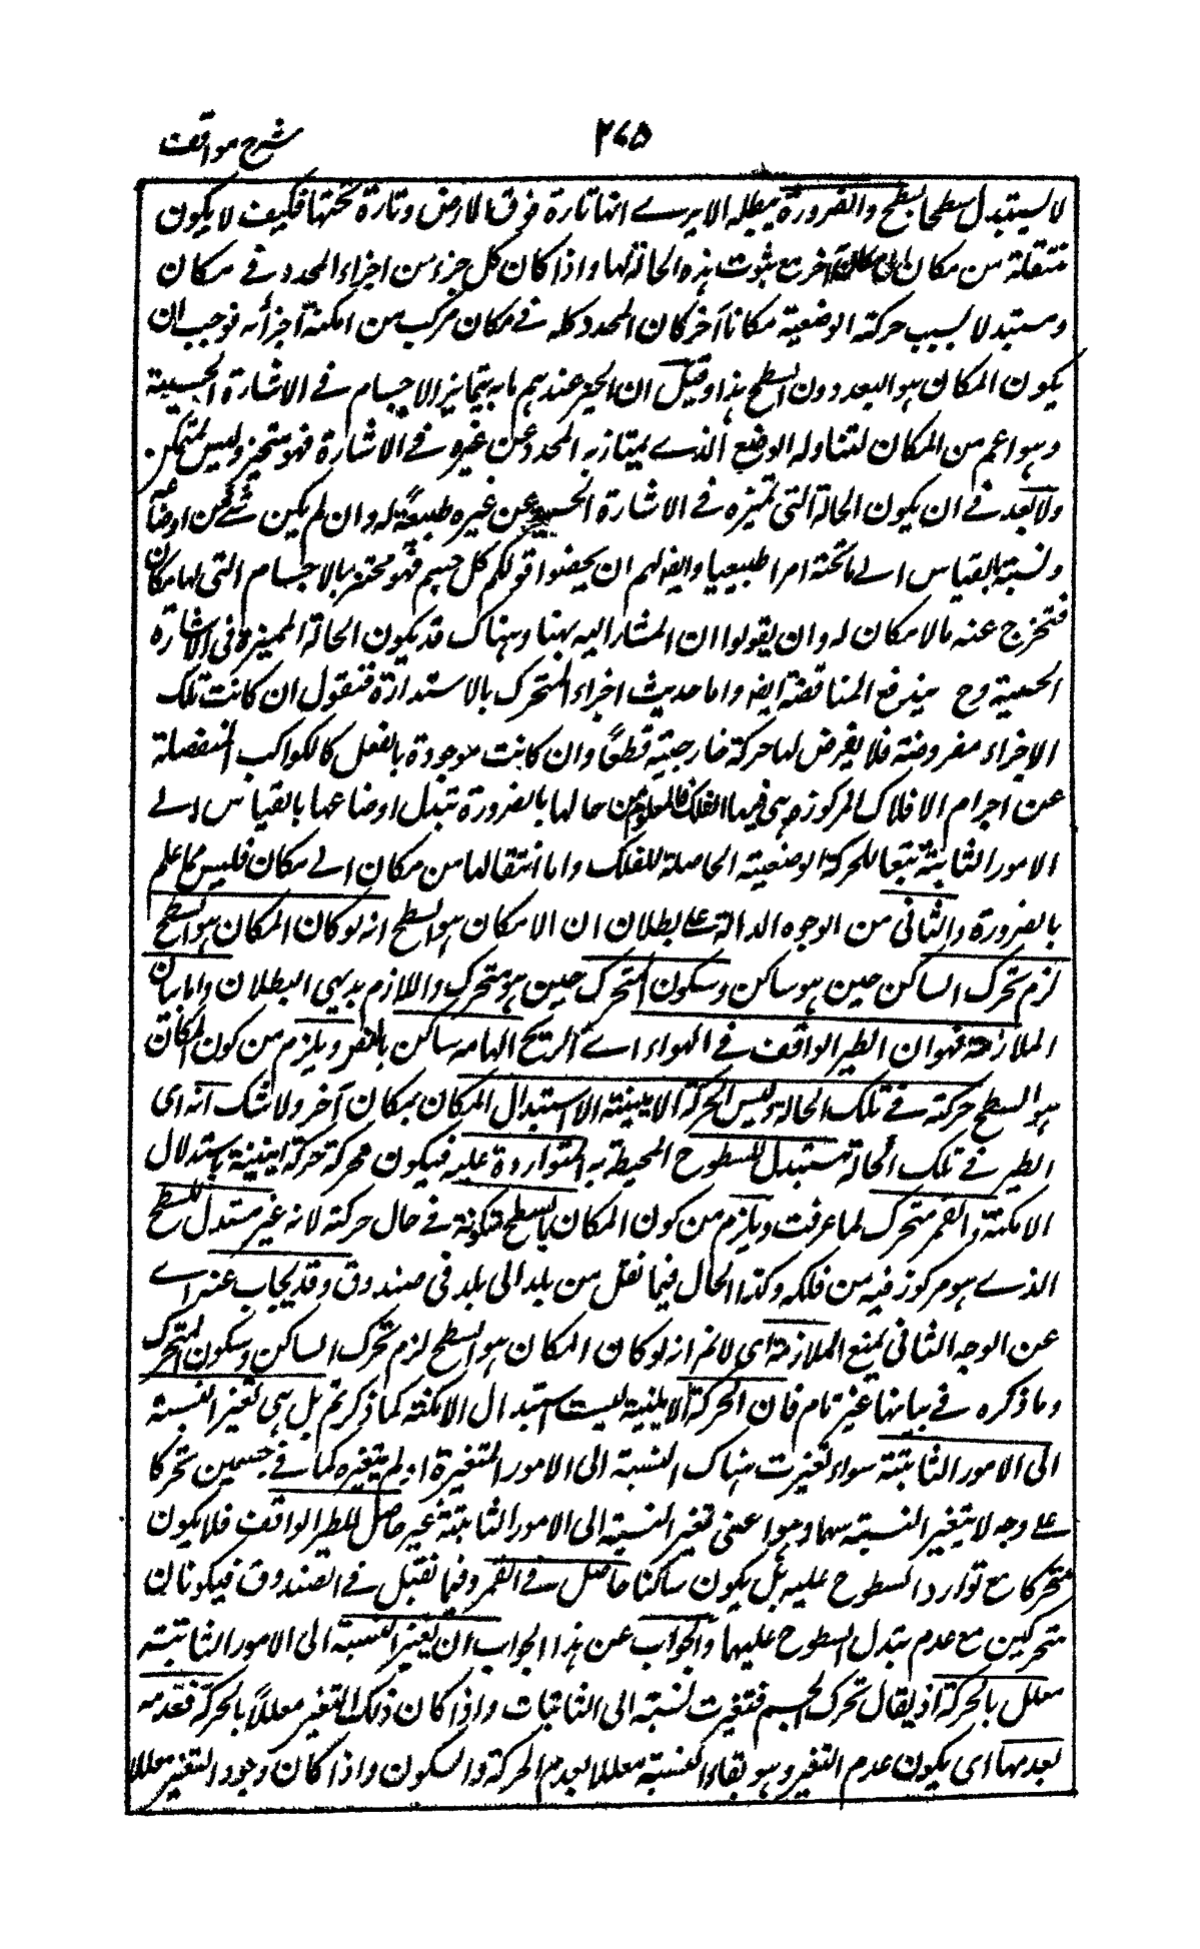 شرح مواقف
٢٦٥
لا يستبدل سطحا بسطح والضرورة يبطله الا يرے انها تارة فوق الارض وتارة تحتها فكيف لا يكون
منتقلة من مكان الى مكان آخر مع ثبوت هذه الحالة لها واذا كان كل جزء من اجزاء المحدد فے مكان
ومستبدلا بسبب حركته الوضعية مكانا آخر كان المحدد كله فے مكان مركب من امكنة اجزائه فوجب ان
يكون المكان هو البعد دون السطح هذا وقيل ان الحيز عندهم ما به يتمايز الاجسام فے الاشارة الحسية
وهو اعم من المكان لتناوله الوضع الذے يمتاز به المحدد عن غيره فے الاشارة فهو متحيز وليس بمتمكن
ولا بعد فے ان يكون الحالة التى تميزه فے الاشارة الحسية عن غيره طبيعة له وان لم يكن شے من اوضاعه
ونسبته بالقياس الے ما تحته امرا طبيعيا وايضا لهم ان يخصوا قولكم كل جسم فهو متحيز بالاجسام التى لها مكان
فتخرج عنه ما لا مكان له وان يقولوا ان المشار اليه بهنا وهناك قد يكون الحالة المميزة فى الاشارة
الحسية وح يندفع المناقضة ايضا واما حديث اجزاء المتحرك بالاستدارة فنقول ان كانت تلك
الاجزاء مفروضة فلا يعرض لها حركة خارجية قطعا وان كانت موجودة بالفعل كالكواكب المنفصلة
عن اجرام الافلاك المركوزه هى فيها الفلك فالمعلوم من حالها بالضرورة تبدل اوضاعها بالقياس الے
الامور الثابتة تبعا للحركة الوضعية الحاصلة للفلك واما انتقالها من مكان الے مكان فليس مما علم
بالضرورة والثانى من الوجوه الدالة علے بطلان ان الامكان هو السطح انه لو كان المكان هو السطح
لزم تحرك الساكن حين هو ساكن وسكون المتحرك حين هو متحرك واللازم بديهى البطلان واما بيان
الملازمة فهو ان الطير الواقف فے الهواء اے الريح الهابة ساكن بالضر ويلزم من كون المكان
هو السطح حركته فے تلك الحالة وليس الحركة الاينية الا استبدال المكان بمكان آخر ولا شك انه اى
الطير فے تلك الحالة مستبدل للسطوح المحيطة به المتواردة عليه فيكون محركة حركة اينية باستدلال
الامكنة والقمر متحرك لما عرفت ويلزم من كون المكان بالسطح سكونه فے حال حركته لانه غير مستبدل للسطح
الذے هو مركوز فيه من فلكه وكذا الحال فيما نقل من بلد الى بلد فى صندوق وقد يجاب عنه اے
عن الوجه الثانى بمنع الملازمة اى لا نم انه لو كان المكان هو السطح لزم تحرك الساكن وسكون المتحرك
وما ذكره فے بيانها غير تام فان الحركة الاينية ليست استبدال الامكنة كما ذكرتم بل هى تغير النسبة
الى الامور الثابتة سواء تغيرت هناك النسبة الى الامور المتغيرة او لم يتغيره كما فے جسمين تحركا
علے وجه لا يتغير النسبة بينهما وهو اعنى تغير النسبة الى الامور الثابتة غير حاصل للطير الواقف فلا يكون
متحركا مع توارد السطوح عليه بل يكون ساكنا حاصل فے القمر وفيما نقل فے الصندوق فيكونان
متحركين مع عدم تبدل السطوح عليهما والجواب عن هذا الجواب ان تغير النسبة الى الامور الثابتة
معلل بالحركة اذ يقال تحرك الجسم فتغيرت نسبته الى الثابتات واذا كان ذلك التغير معللا بالحركة فعدمه
بعدمها اى يكون عدم التغير وهو بقاء النسبة معللا بعدم الحركة والسكون واذا كان وجود التغير معللا